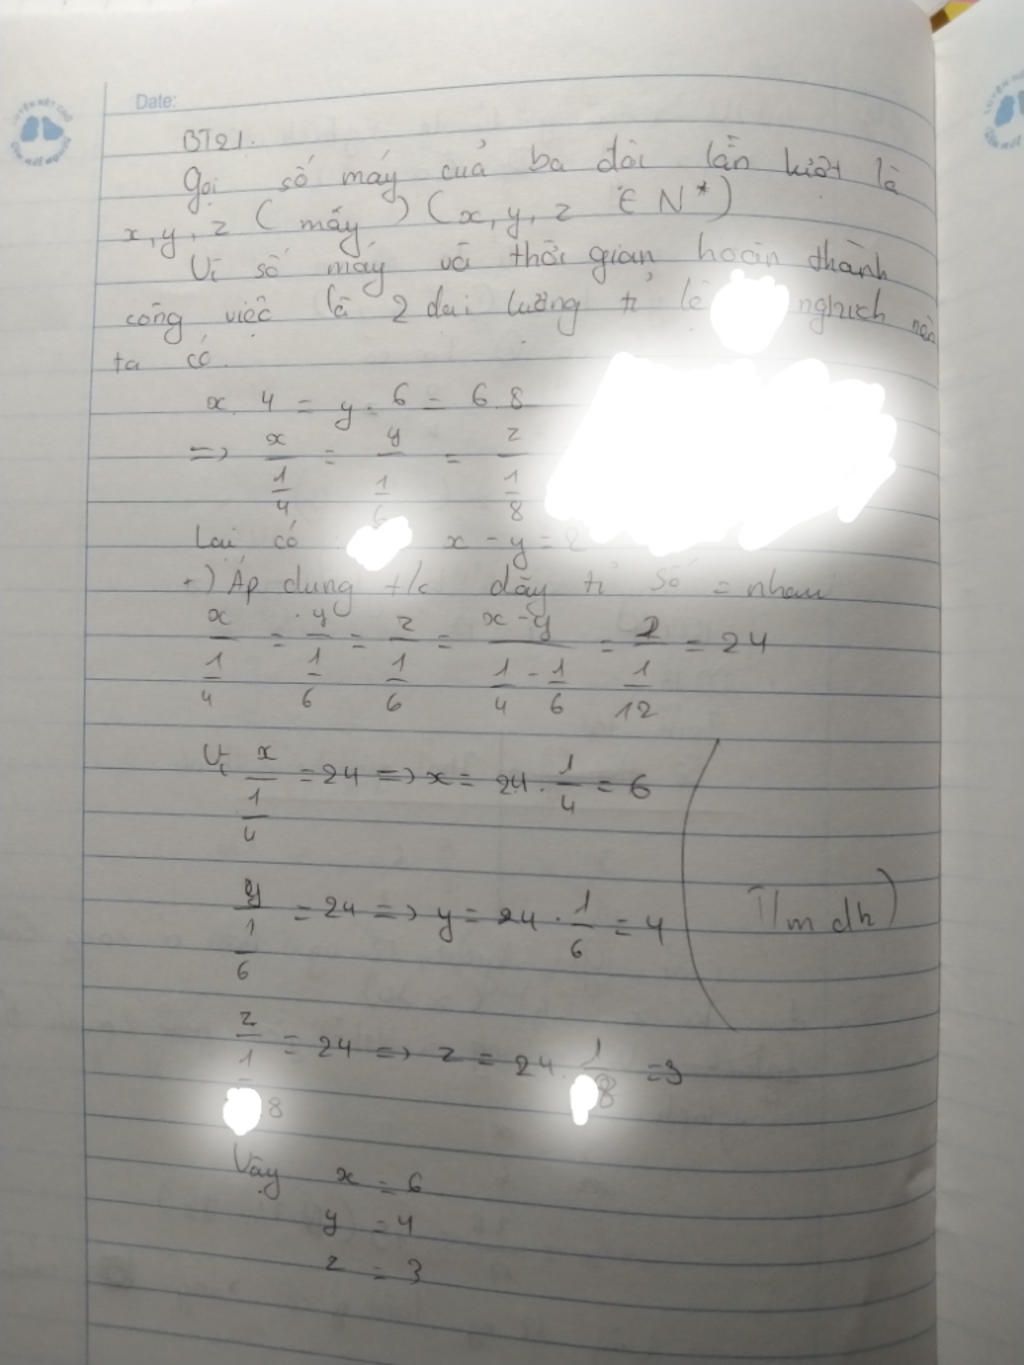 Date:
BT21.
Gọi số máy của ba đội lần lượt là
x, y, z ( máy ) ( x, y, z ∈ N* )
Vì số máy và thời gian hoàn thành
công việc là 2 đại lượng tỉ lệ nghịch nên
ta có
x. 4 = y. 6 = 6.8
=> x/(1/4) = y/(1/6) = z/(1/8)
Lại có x - y = 2
+) Áp dụng t/c dãy tỉ số = nhau
x/(1/4) = y/(1/6) = z/(1/6) = (x - y)/(1/4 - 1/6) = 2/(1/12) = 24
Vì x/(1/4) = 24 => x = 24 . 1/4 = 6
y/(1/6) = 24 => y = 24 . 1/6 = 4
(T/m đk)
z/(1/8) = 24 => z = 24. 1/8 = 3
Vậy x = 6
y = 4
z = 3